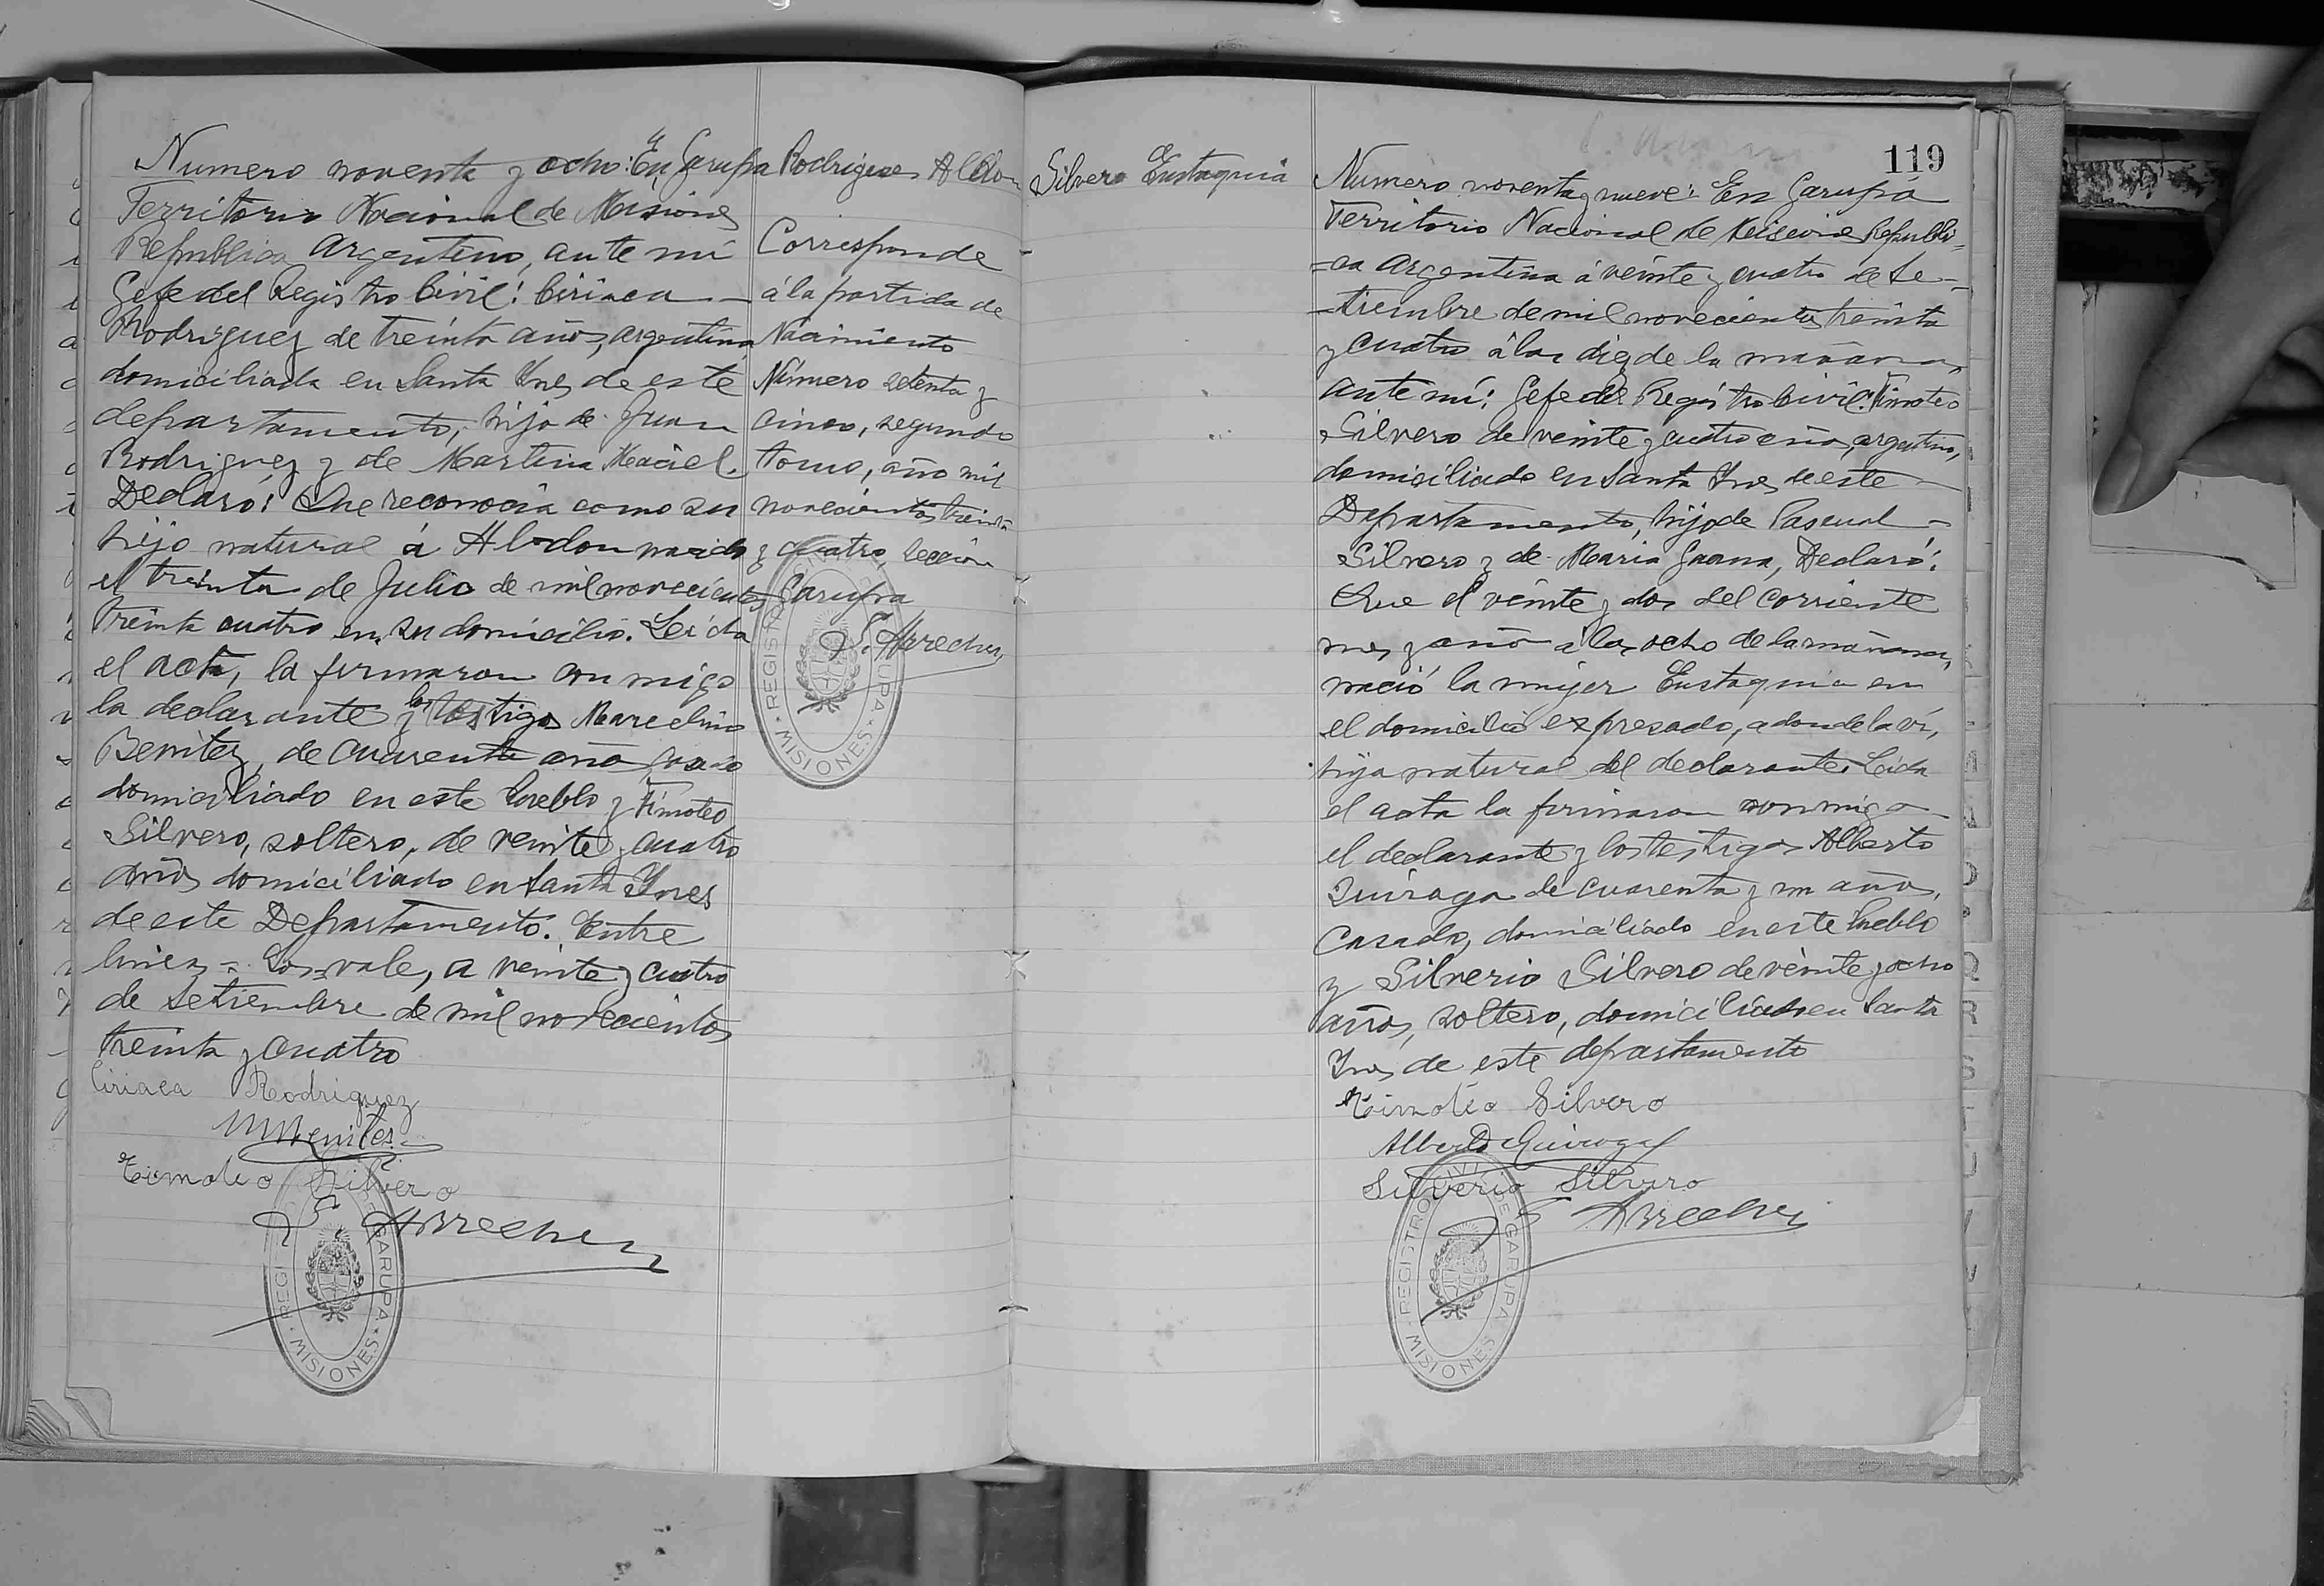 Numero noventa y ocho: En Garupa
Territorio Nacional de Misiones
Republica Argentina, ante mi
Gefe del Registro Civil: Ciriaca
Rodriguez de treinta años, argentina
domiciliada en Santa Ynes de este
departamento, hijo de Juan
Rodriguez y de Martina Maciel.
Declaró: Que reconocia como su
hijo natural á Abdon nacido
el treinta de Julio de mil novecientos
treinta cuatro en su domicilio. Leida
el acta, la firmaron con migo
la declarante y los testigos Marcelino
Benitez, de cuarenta años casado
domiciliado en este Pueblo y Timoteo
Silvero, soltero, de veinte y cuatro
años domiciliado en Santa Ynes
de este Departamento. Entre
lineas = los = vale, a veinte y cuatro
de Setiembre de mil novecientos
treinta y cuatro
Ciriaca Rodriguez
M Benites
Timoteo Silvero
Arrechea
REGISTRO CIVIL DE GARUPA
MISIONES
Rodriguez Abdon
Corresponde
á la partida de
Nacimiento
Número setenta y
cinco, segundo
tomo, año mil
novecientos treinta
y cuatro, Sección
Garupa
Arrechea
REGISTRO CIVIL DE GARUPA
MISIONES
Silvero Eustaquia
119
Numero noventa y nueve: En Garupa
Territorio Nacional de Misiones Republi=
=ca Argentina á veinte y cuatro de Se-
-tiembre de mil novecientos treinta
y cuatro á las diez de la mañana,
ante mí: Gefe del Registro Civil: Timoteo
Silvero de veinte y cuatro años, argentino,
domiciliado en Santa Ynes de este
Departamento, hijo de Pascual
Silvero y de Maria Gaona, Declaró:
Que el veinte y dos del corriente
mes y año á las ocho de la mañana,
nació la mujer Eustaquia en
el domicilio expresado, a donde la vi,
hija natural del declarante. Leida
el acta la firmaron conmigo
el declarante y los testigos Alberto
Quiroga de cuarenta y un años,
Casado, domiciliado en este Pueblo
y Silverio Silvero de veinte y ocho
años, soltero, domiciliado en Santa
Ynes de este departamento
Timoteo Silvero
Alberto Quiroga
Silverio Silvero
Arrechea
REGISTRO CIVIL DE GARUPA
MISIONES